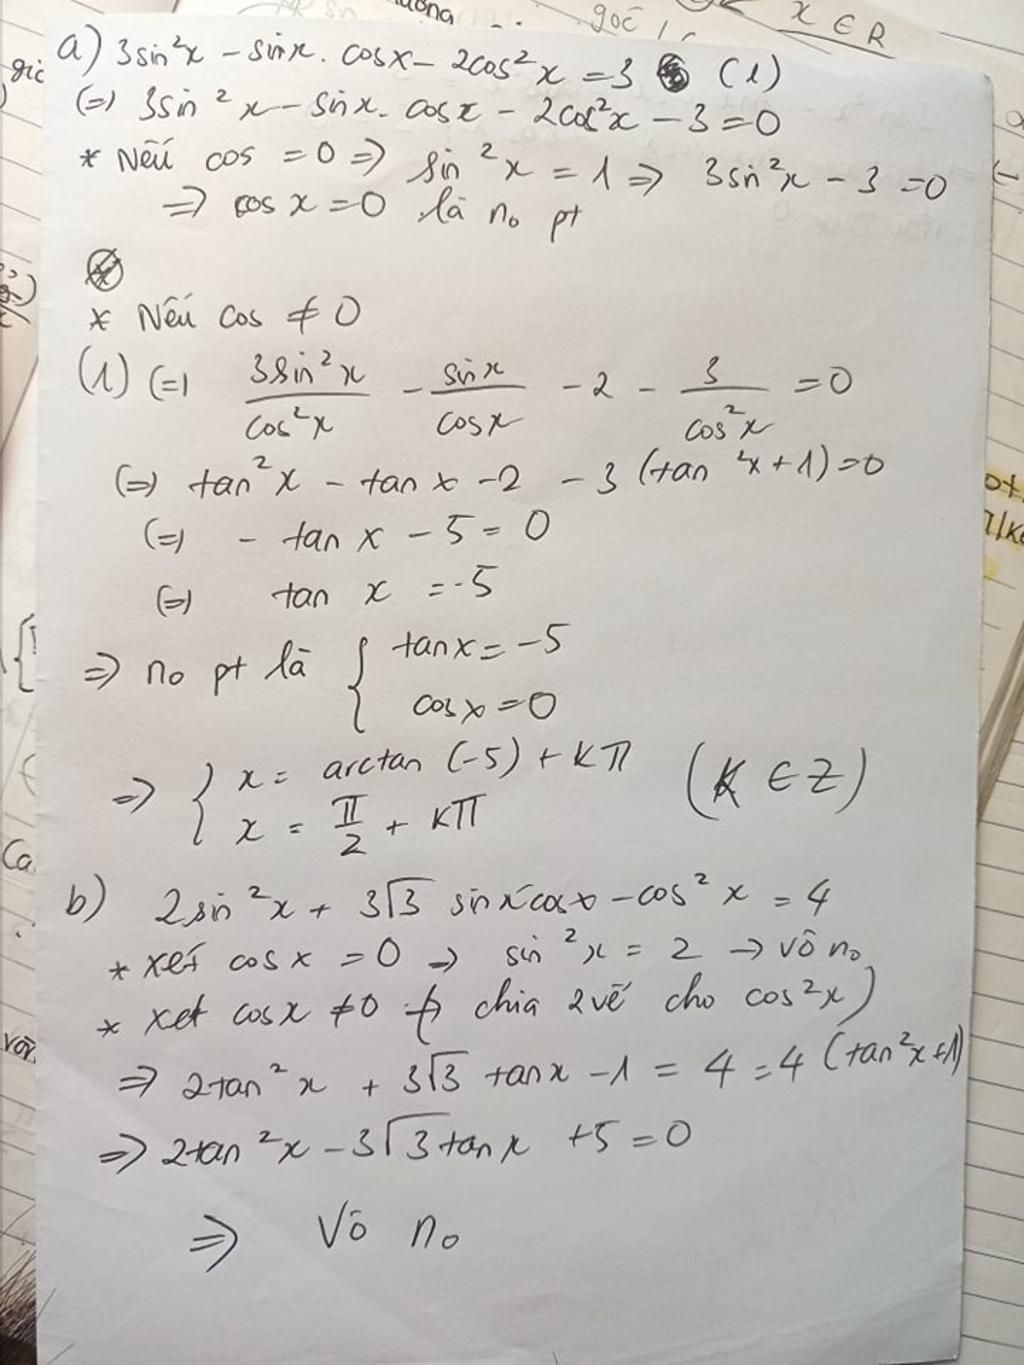 góc
x ∈ R
a) 3sin²x - sinx. cosx - 2cos²x = 3 (1)
(=) 3sin²x - sinx. cosx - 2cos²x - 3 = 0
* Nếu cos = 0 => sin²x = 1 => 3sin²x - 3 = 0
=> cosx = 0 là no pt
* Nếu cos ≠ 0
(1) (=) 3sin²x/cos²x - sinx/cosx - 2 - 3/cos²x = 0
(=) tan²x - tanx - 2 - 3(tan²x + 1) = 0
(=) - tan x - 5 = 0
(=) tan x = -5
=> no pt là { tanx = -5
cosx = 0
=> { x = arctan (-5) + kπ (K ∈ Z)
x = π/2 + kπ
b) 2sin²x + 3√3 sinxcosx - cos²x = 4
* xét cosx = 0 => sin²x = 2 → vô no
* xet cosx ≠ 0 (chia 2 vế cho cos²x)
=> 2tan²x + 3√3 tanx - 1 = 4 = 4 (tan²x + 1)
=> 2tan²x - 3√3 tanx + 5 = 0
=> Vô no